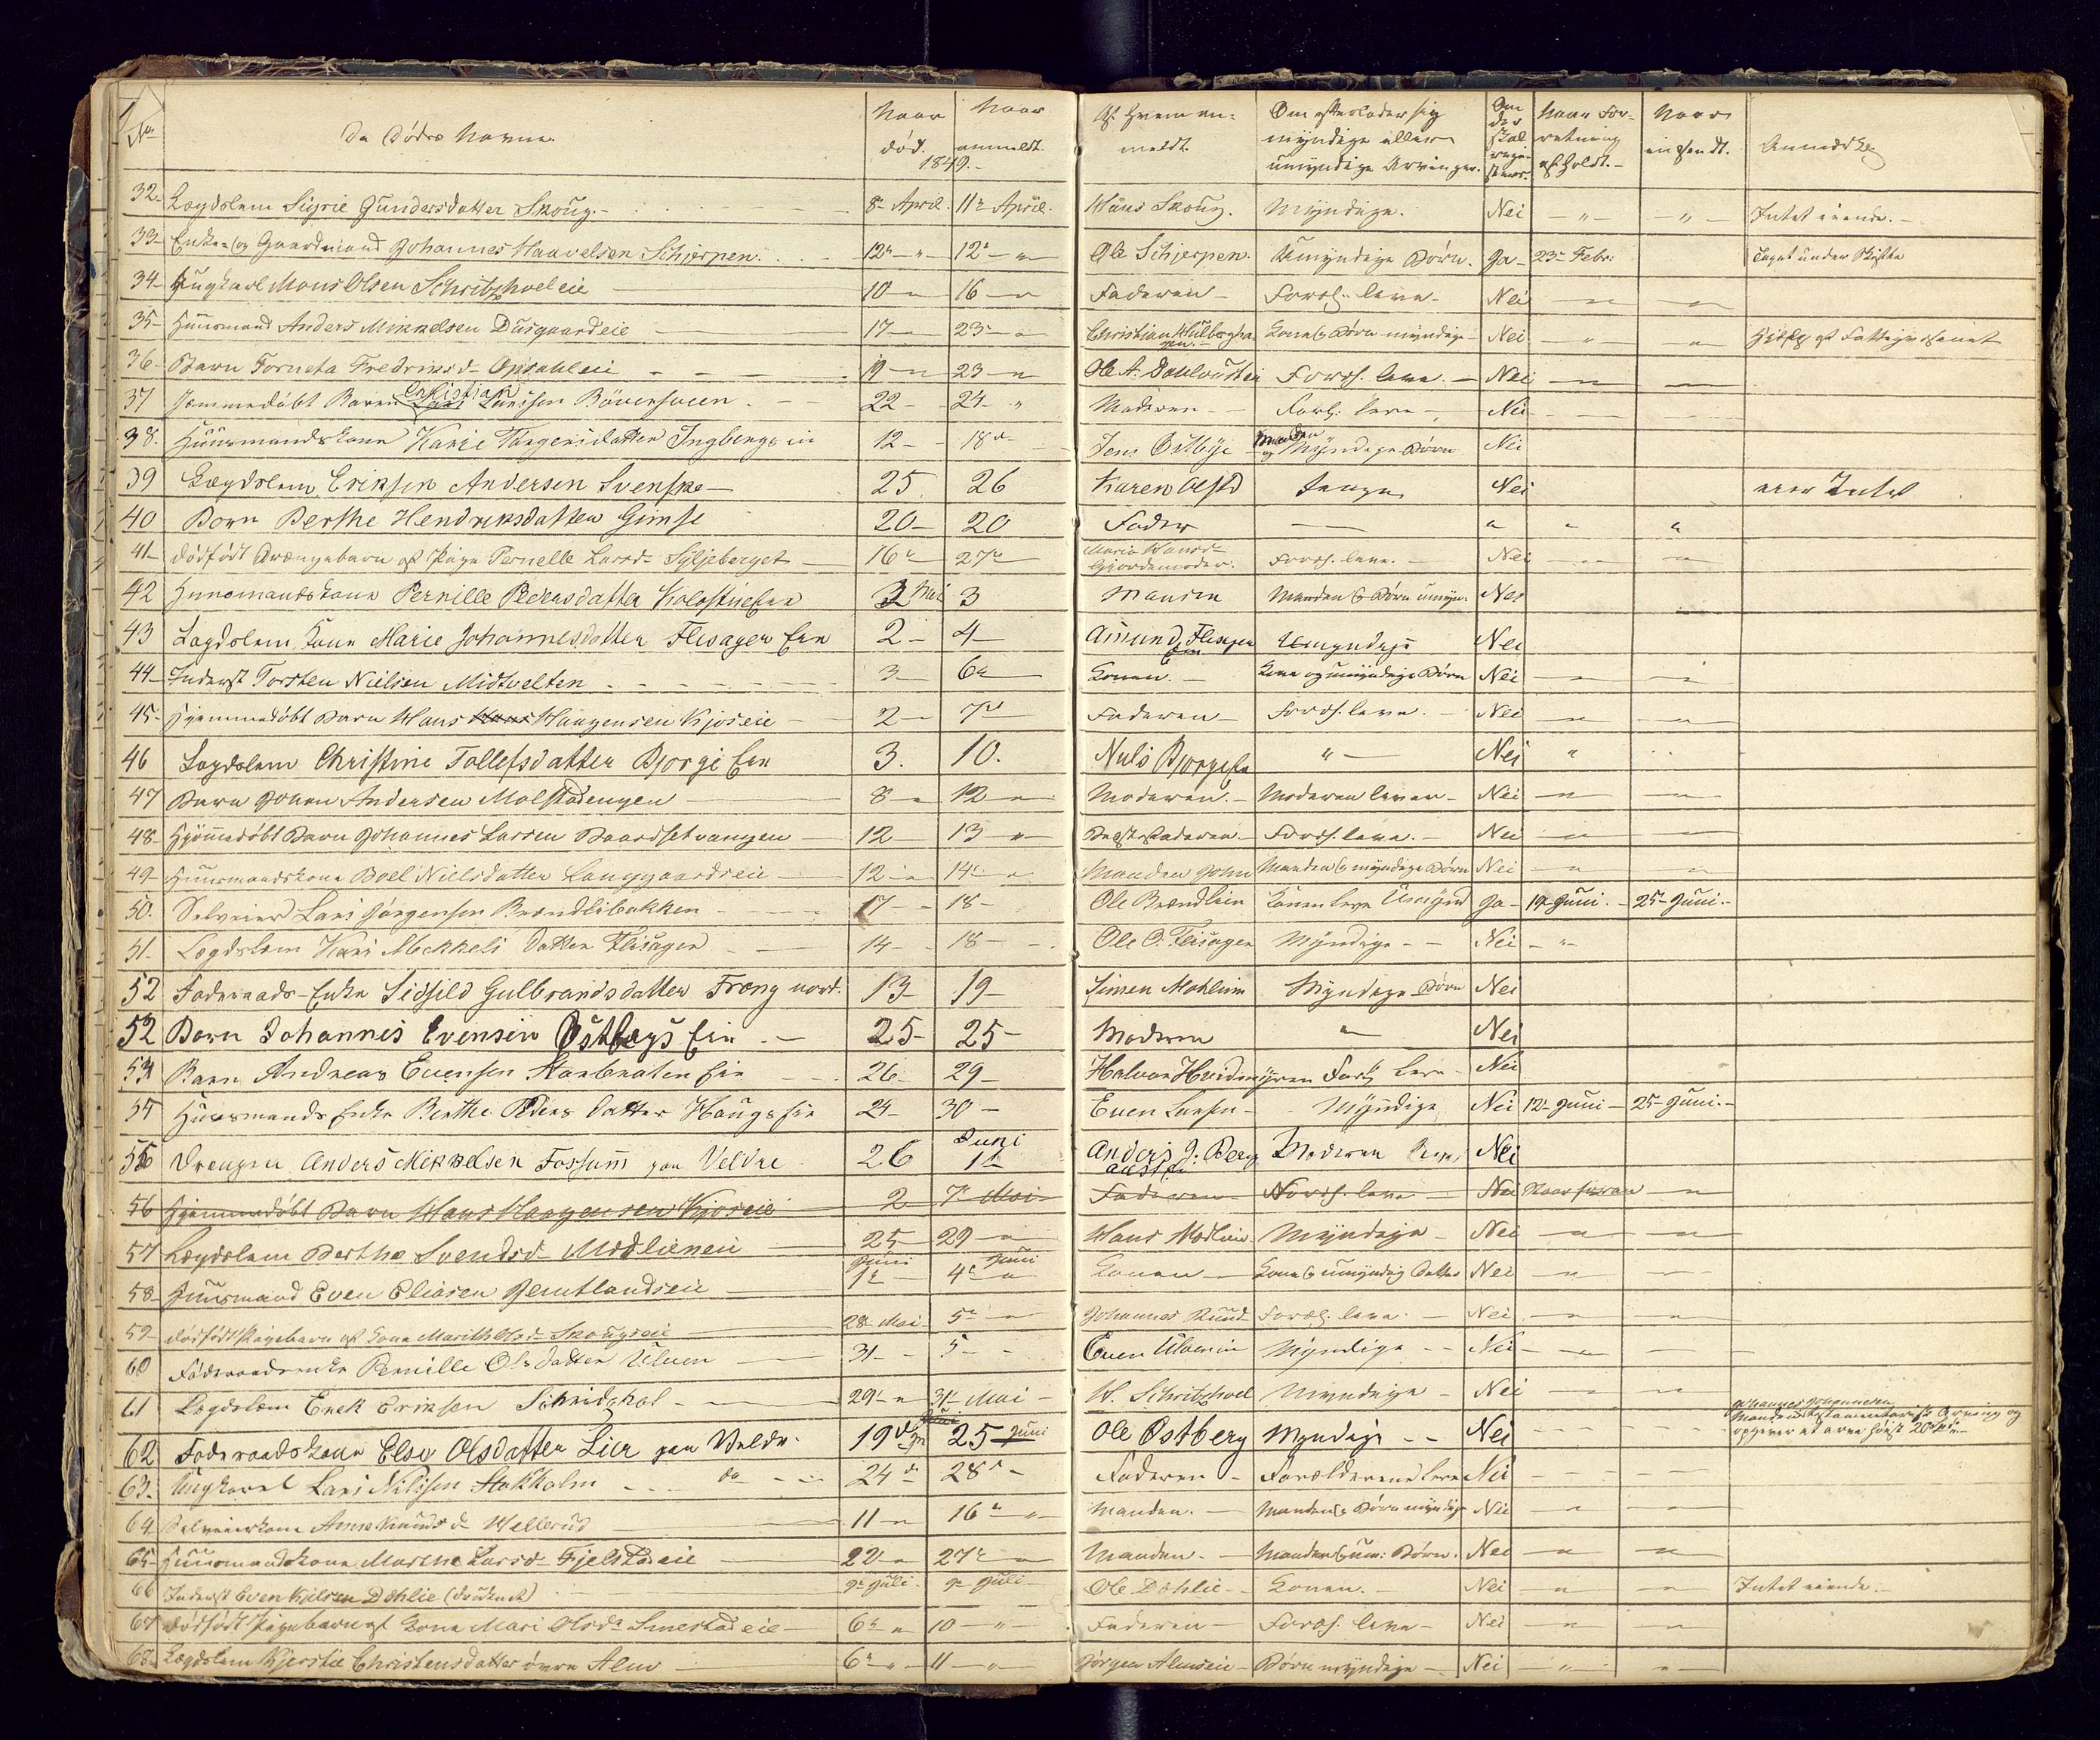 No De Dødes Navne. Naar død. Naar anmeldt. Af Hvem anmeldt. Om efterlader sig myndige eller umyndige Arvinger. Om der skal regi- streres. Naar For- retning afholdt. Naar indsendt. Anmærkn
1849.
32 Lægdslem Sigrie Gundersdatter Skoug. 8 April. 11 April. Hans Skoug. Myndige. Nei " " Intet eiende.
33 Enke- og Gaardmand Johannes Haavelsen Schjerpen. 12 " 12 " Ole Schjerpen. Umyndige Børn. Ja 23 Febr. Taget under Skifte
34 Ungkarl Mons Olsen Schritzhoeleie 10 " 16 " Faderen Foræl. leve. Nei " "
35 Huusmand Anders Mikkelsen Dusgaardeie 17 " 23 " Christian Hulbergha gen. Kone & Børn myndige Nei " " Hielp af Fattigvæsenet
36 Barn Torneta Fredriksd. Opsahleie 19 " 23 " Ole A. Foræl. leve. Nei " "
37 Hjemmedøbt Barn Christian Larssen 22 24 " Moderen Foræl. leve Nei
38. Huusmandskone Karie Torgersdatter Ingbergseie 12 18 Jens Østbye Manden og Myndige Børn Nei
39 Lægdslem Eriksen Andersen Svenske 25 26 Karen Ingen Nei eier Intet
40 Barn Berthe Hendriksdatter Gimse 20 20 Fader " " "
41 Dødfødt Drengebarn af Pige Pernelle Larsd. Syljeberget 16 27 Maria Hansd. Gjordemoder. Foræl. leve. Nei "
42 Huusmandskone Pernille Pedersdatter Kolostueeie 2 Mai 3 Manden Manden & Børn umyn. Nei
43 Lægdslem Kone Marie Johannesdatter Flisager Eie 2 4 Amund Flisager Eie Umyndige Nei
44 Inderst Torsten Nielsen Midtvelten 3 6 Konen. Kone og umyndige Børn Nei " "
45 Hjemmedøbt Barn Hans Hans Haagensen Kjoseie 2 7 Faderen Foræl. leve. Nei " "
46 Lægdslem Christine Tollefsdatter Bjorge Eie 3. 10. Nils Bjorge Eie " Nei "
47 Barn Johan Andersen Molstadengen 8 " 12 " Moderen. Moderen lever Nei " "
48 Hjemmedøbt Barn Johannes Larsen Baardsetvangen 12 13 " Foræl. leve. Nei " "
49 Huusmandskone Boel Nielsdatter Langgaardseie 12 " 14 " Manden John Manden & myndige Børn Nei " "
50. Selveier Lars Jørgensen Brændlibakken 17 18 Ole Brændlien Konen leve Umynd Ja 19 Juni. 25 Juni.
51. Lægdslem Kari Mekkels Datter Flisagen 14 18 Ole O. Flisagen Myndige Nei "
52 Føderaads-Enke Sidsild Gulbrandsdatter Fræng nord. 13 19 Simen Mohlien Myndige Børn Nei
52 Barn Johannes Evensen Østbergs Eie 25 25 Moderen " Nei
54 Barn Andreas Evensen Stenbraten Eie 26 29 Halvor Hvidmyren Foræl leve Nei
54 Huusmands Enke Berthe Peders Datter Haugs Eie 24 30 Even Larsen Myndige Nei 12 Juni 25 Juni.
55 Drengen Anders Mikkelsen Fossum paa Veldre 26 Juni 1 Anders J. Berg Moderen leve. Nei
56 Hjemmedøbt Barn Hans Haagensen Kjoseie 2 7 Mai Faderen Foræl. leve Nei Naar foran "
57 Lægdslem Berthe Svendsd. Modlieneie 25 29 " Hans Modlien Myndige Nei " "
58 Huusmand Even Eliasen Jemtlandseie Juni 1 Juni 4 " Konen Kone & umyndig Datter Nei " "
59 Dødfødt Pigebarn af Kone Marith Olsd. Skougseie 28 Mai 5 " Johannes Rund Foræl. leve. Nei " "
60 Føderaadsenke Pernille Ols Datter Ulven 31 5 Even Ulven Myndige Nei "
61 Lægdslem Erek Eriksen 29 " 31 Mai Schritzhoel Myndige Nei " "
62 Føderaadskone Else Olsdatter Lier paa Veldre. 19 25 Juni Ole Østberg Myndige Nei Johannes Johannesen
63. Ungkarl Lars Nilssen Stokholm do 24 28 Faderen Forældrene leve Nei
64 Selveierkone Anne Knudsd. Hellerud 11 " 16 " Manden. Manden & Børn myndige Nei " "
65 Huusmandskone Marthe Larsd. Fjelstadeie 22 " 27 " Manden. Manden & um: Børn. Nei " "
66 Inderst Even Kjelsen Dæhlie (druknet) 9 Juli 9 Juli Ole Dæhlie Konen. Nei " " Intet eiende.
67 Dødfødt Pigebarn af Kone Mari Olsd. Smestadeie 6 " 10 " Faderen Foræl. leve Nei " "
68 Lægdslem Kjerstie Christensdatter øvre Alm 6 " 11 " Jørgen Almseie Børn myndige Nei " "